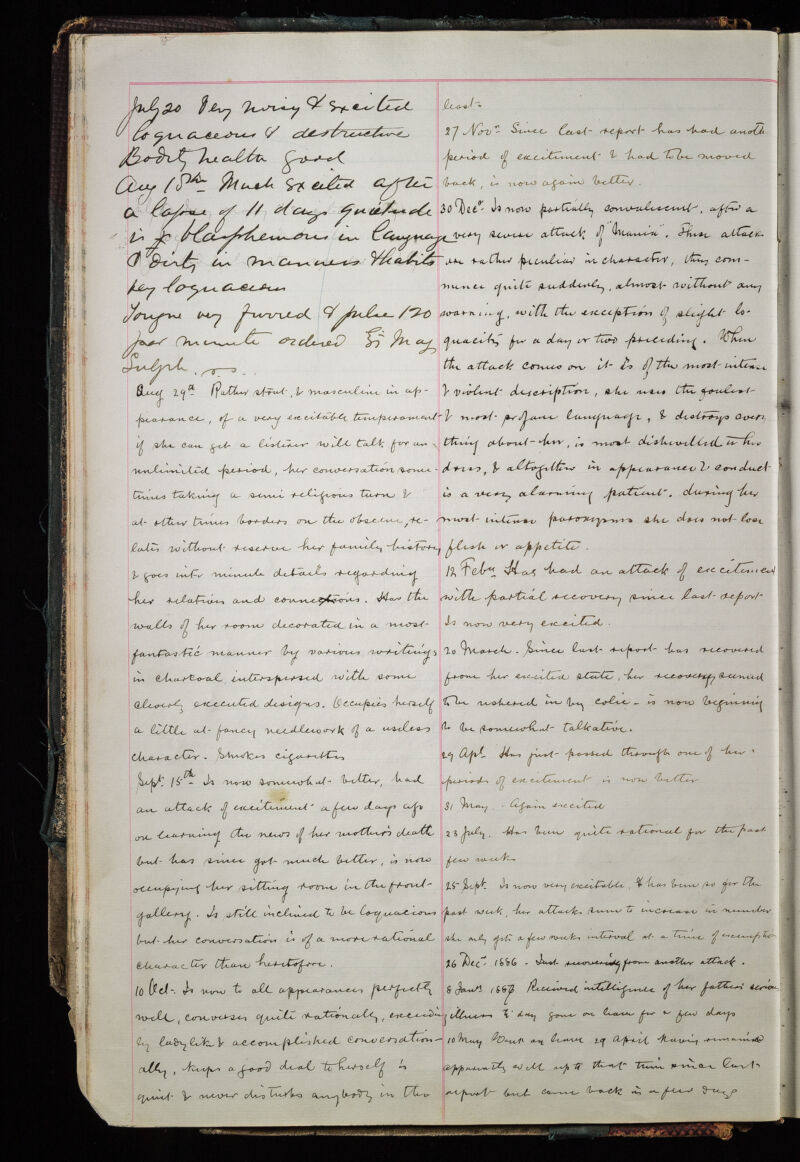 July 20 Very noisy & excited
loquaceous & destructive
Bodily health good
Aug 18th Much excited after
a lapse of 11 days quietude
is blasphemous in language
& dirty in manners & habits
very loquaceous
Tongue very furred & pulse 120
per minute ordered Mag
Sulph.
Aug 29th Rather stout, & masculine in ap-
pearance, of a very excitable temperament
if she can get a listener will talk for an
unlimited period, her conversation some-
times taking a semi religious turn &
at other times borders on the obscene, re-
lates without reserve her family history
& goes into minute details regarding
her relatives and connections. Has the
walls of her room decorated in a most
fantastic manner by various writings
in charcoal, interspersed with some
cleverly executed designs. Occupies herself
a little at fancy needlework of a useless
character. Smokes cigarettes
Sept. 15th Is now somewhat better, had
an attack of excitement a few days ago
on learning the news of her mother's death
but has since got much better, is now
occupying her sitting room in the front
gallery. Is still inclined to be loquacious
but her conversation is of a more rational
character than heretofore.
10 Oct. Is now to all appearances perfectly
well, converses quite rationally, exceeding
ly ladylike & accomplished conversation-
ally, keeps a good deal to herself is
quiet & never disturbs anybody in the
least.
27 Nov. Since last report has had anoth
period of excitement & had to be moved
back, is now again better.
30 Dec. Is now partially convalescent, after a
very severe attack of "Mania". These attacks
are rather peculiar in character, they com-
mence quite suddenly, almost without any
warning, with the exception of slight lo-
quacity for a day or two preceding. When
the attack comes on it is of the most intense
& violent description, she uses the foulest
& most profane language, & destroys every
thing about her, is most dishevelled in her
dress, & altogether in appearance & conduct
is a very alarming patient. during her
most intense paroxysms she does not lose
flesh or appetite.
12 Feby Has had an attack of excitement
with partial recovery since last report
Is now very excited.
20 March. Since last report has recovered
from her excited state, her recovery seemed
to be ushered in by colic - is now beginning
to be somewhat talkative.
29 Apl. Has just passed through one of her
periods of excitement is now better
31 May. Again excited
23 July. Has been quite rational for the past
few weeks
25 Sept. Is now very excitable, & has been so for the
past week, her attacks seem to increase in number
she only gets a few weeks interval at a time of exemption
26 Dec. 1886 - Just recovering from another attack.
8 Jany 1887 Received intelligence of her father's serious
illness & day gone on leave for a few days
10 May Went on leave 29 April having remained
apparently well up to that time since last
report but came back in a few days